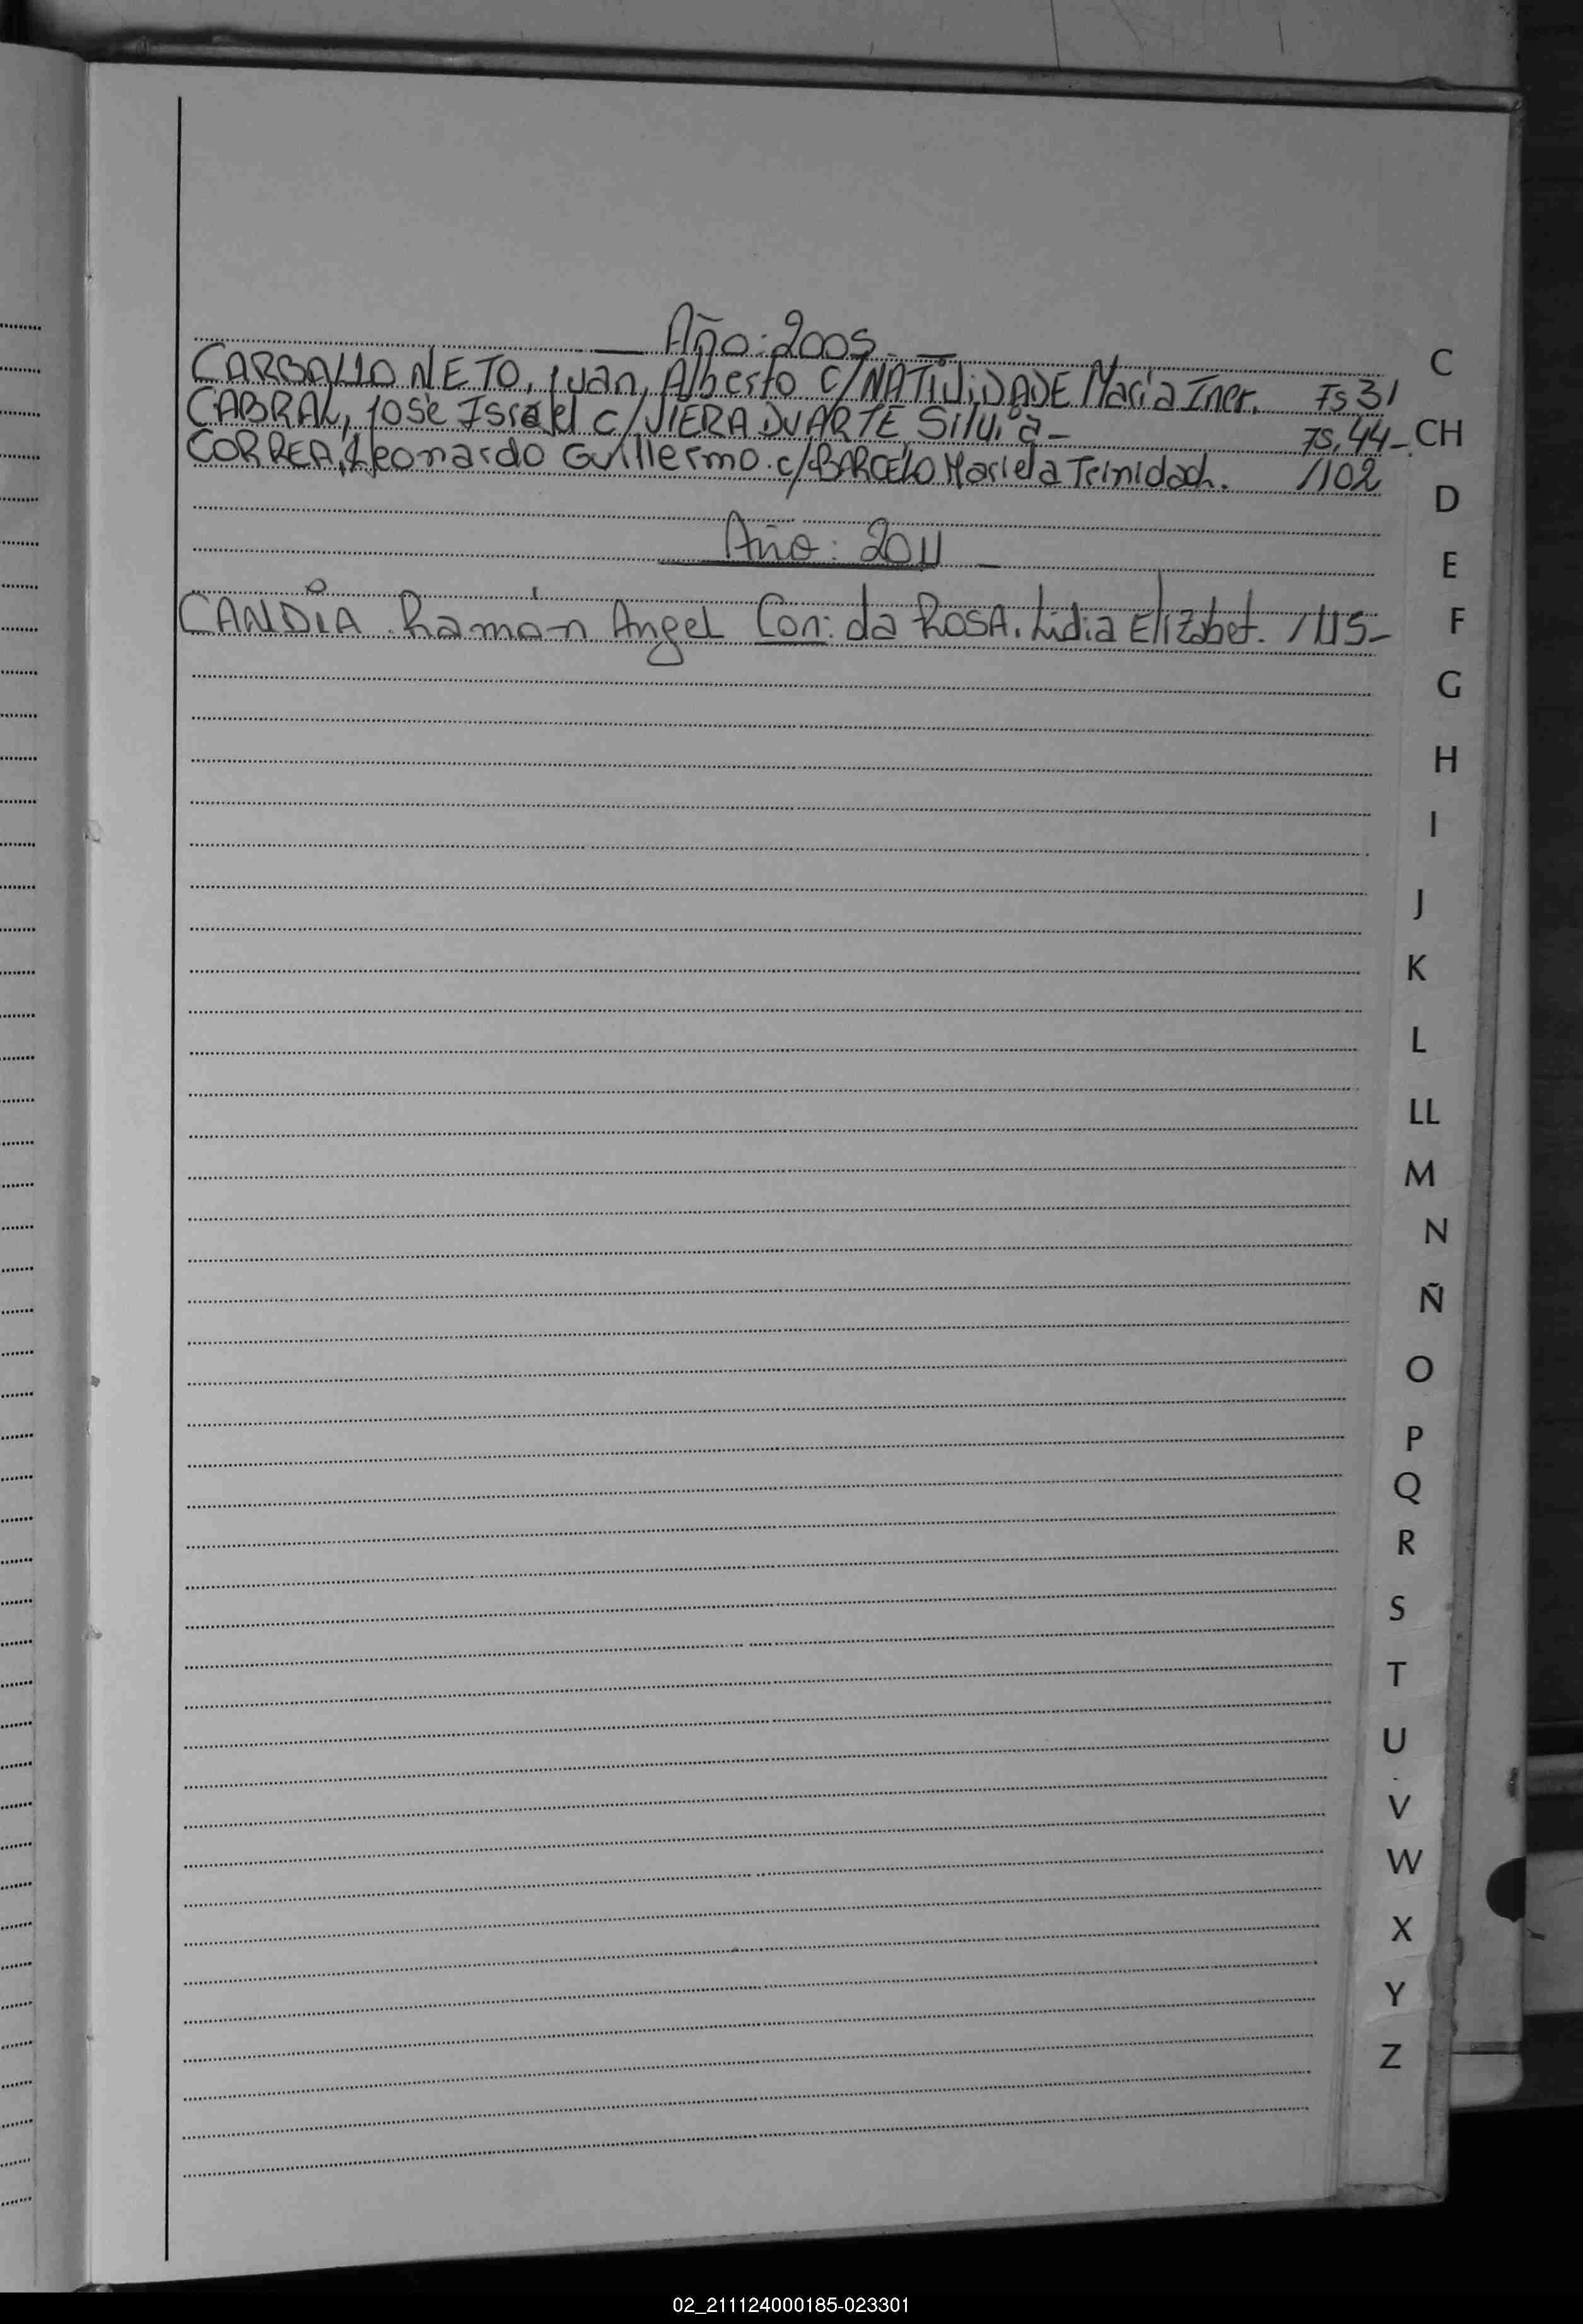 Año: 2005
CARBALLO NETO, Juan, Alberto c/ NATIVIDADE María Iner. Fs 31
CABRAL, José Israel c/ VIERA DUARTE Silvia - Fs. 44 -
CORREA, Leonardo Guillermo. c/ BARCELO Mariela Trinidad. /102
Año: 2011
CANDIA. Ramón Angel Con: da ROSA. Lidia Elizabet. /115-
C
CH
D
E
F
G
H
I
J
K
L
LL
M
N
Ñ
O
P
Q
R
S
T
U
V
W
X
Y
Z
02_211124000185-023301